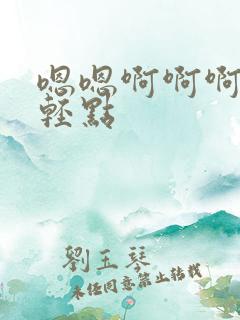 嗯嗯啊啊啊
輕點
劉玉琴
未经同意禁止转载